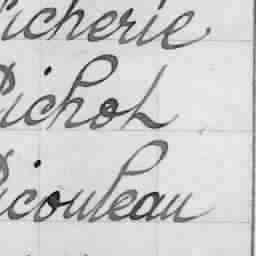 Picherie
Pichot
Picouleau